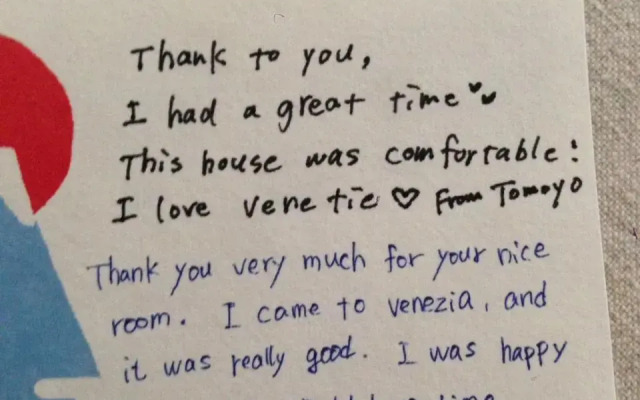 Thank to you,
I had a great time
This house was comfortable!
I love venetie ♡ From Tomoyo
Thank you very much for your nice
room. I came to venezia, and
it was really good. I was happy